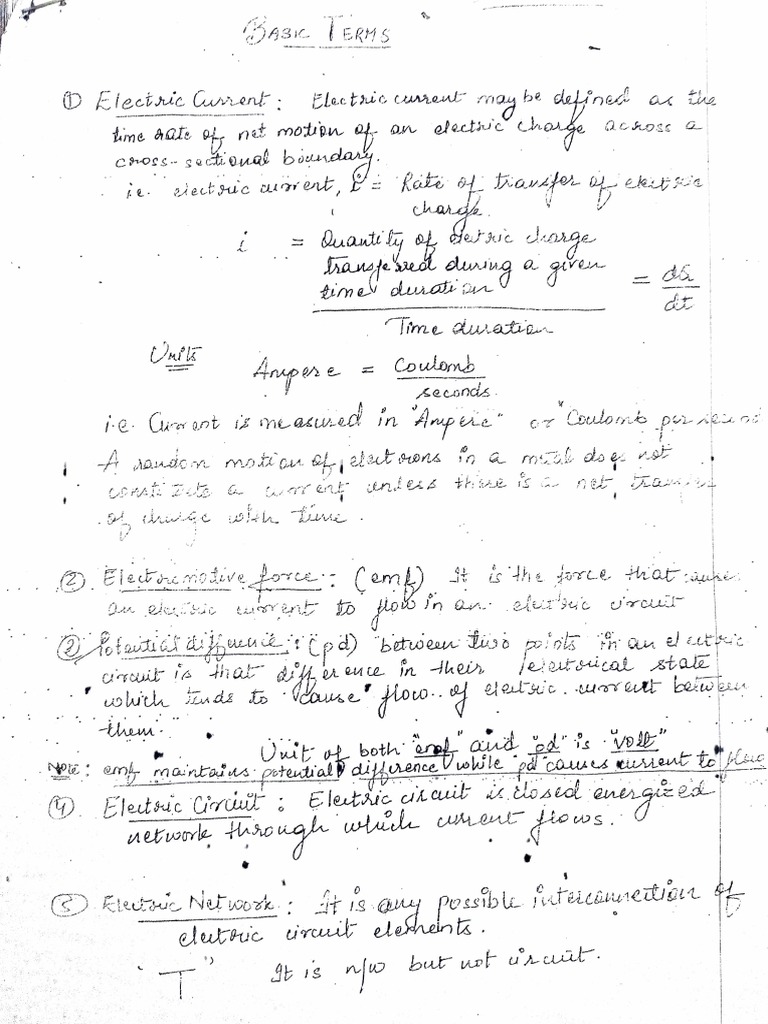 BASIC TERMS
① Electric Current : Electric current may be defined as the
time rate of net motion of an electric charge across a
cross-sectional boundary.
ie. electric current, i = Rate of transfer of electric
charge.
i = Quantity of electric charge
transferred during a given
time duration = dQ
Time duration dt
Units
Ampere = Coulomb
seconds.
i.e. Current is measured in "Ampere" or "Coulomb per second
A random motion of electrons in a metal does not
constitute a current unless there is a net transfer
of charge with time.
② Electromotive force : (emf) It is the force that cause
an electric current to flow in an electric circuit
② Potential difference : (pd) between two points in an electric
circuit is that difference in their electrical state
which tends to cause flow of electric current between
them.
Unit of both "emf" and "pd" is "volt"
Note : emf maintains potential difference while pd causes current to flow
④ Electric Circuit : Electric circuit is closed energized
network through which current flows.
⑤ Electric Network : It is any possible interconnection of
electric circuit elements.
It is n/w but not circuit.